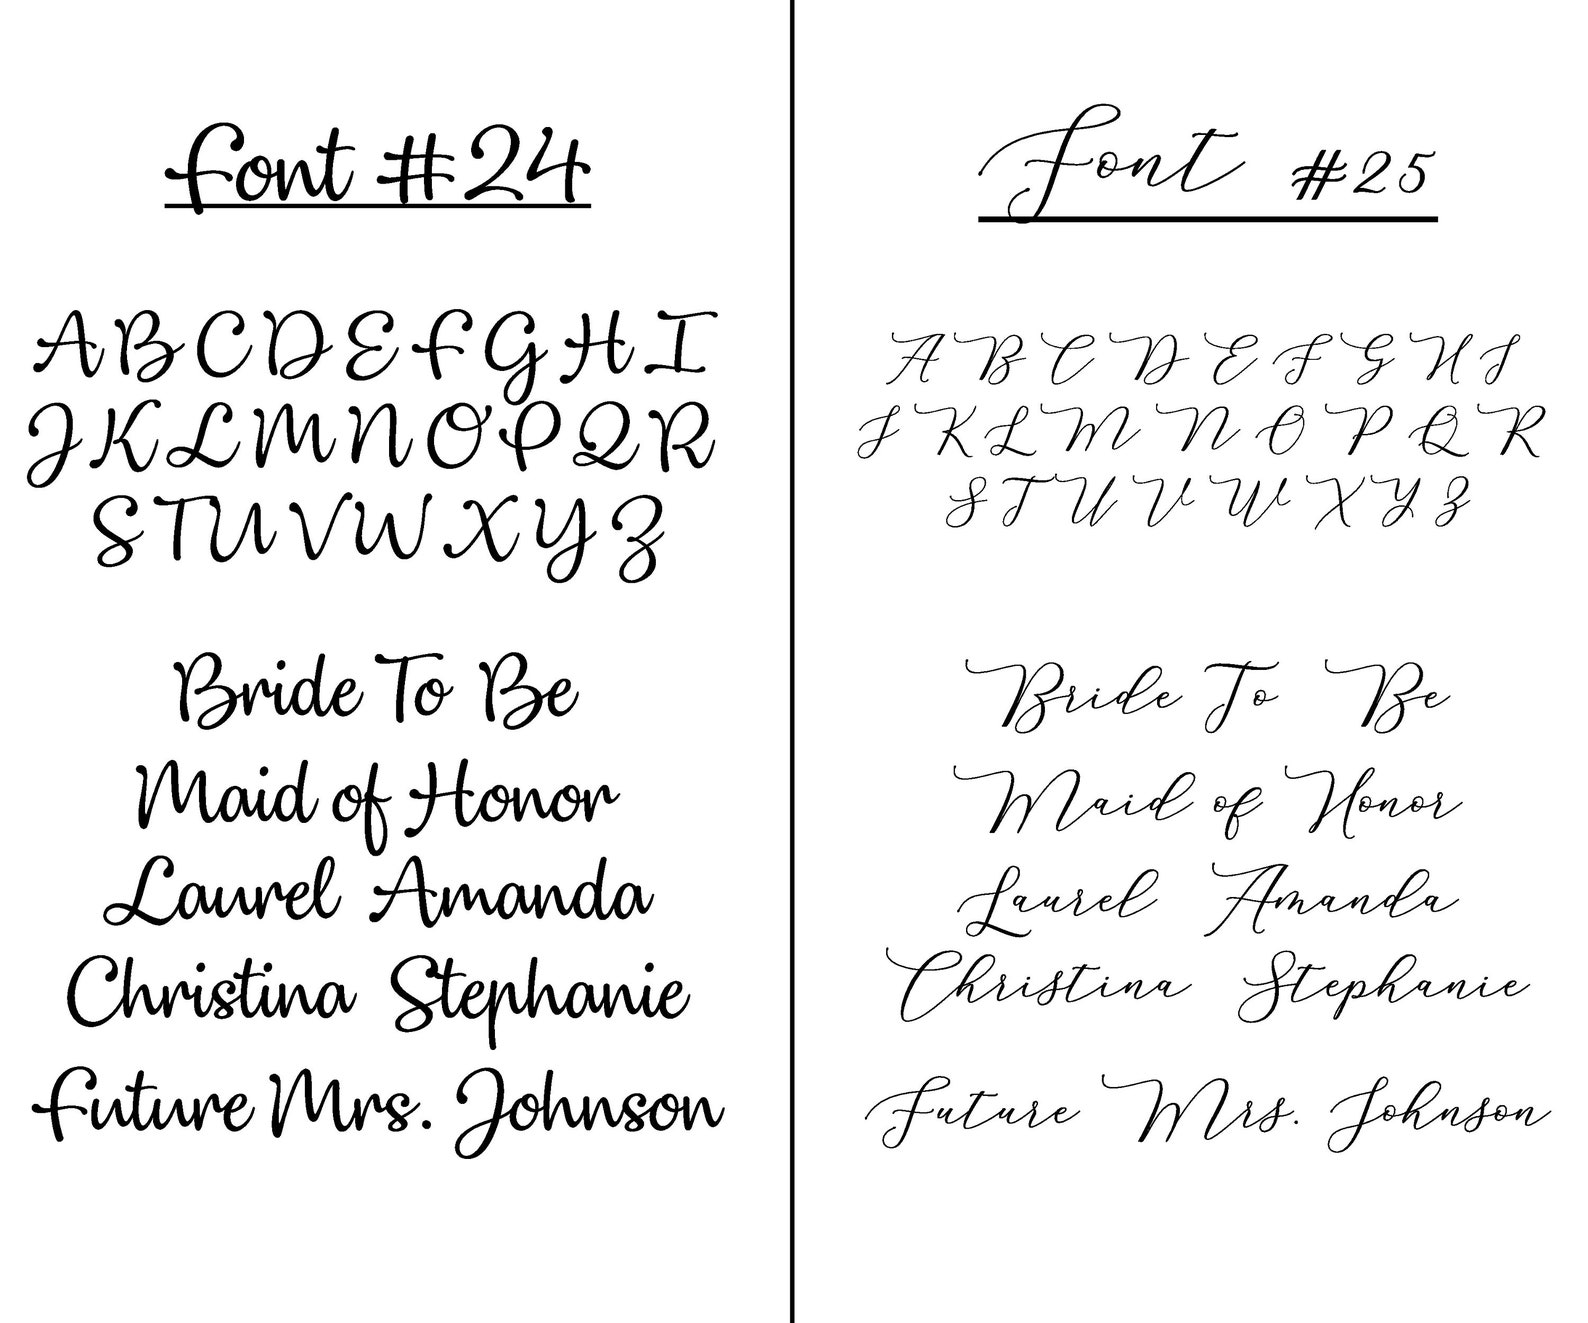 Font #24
A B C D E F G H I
J K L M N O P Q R
S T U V W X Y Z
Bride To Be
Maid of Honor
Laurel Amanda
Christina Stephanie
Future Mrs. Johnson
Font #25
A B C D E F G H I
J K L M N O P Q R
S T U V W X Y Z
Bride To Be
Maid of Honor
Laurel Amanda
Christina Stephanie
Future Mrs. Johnson